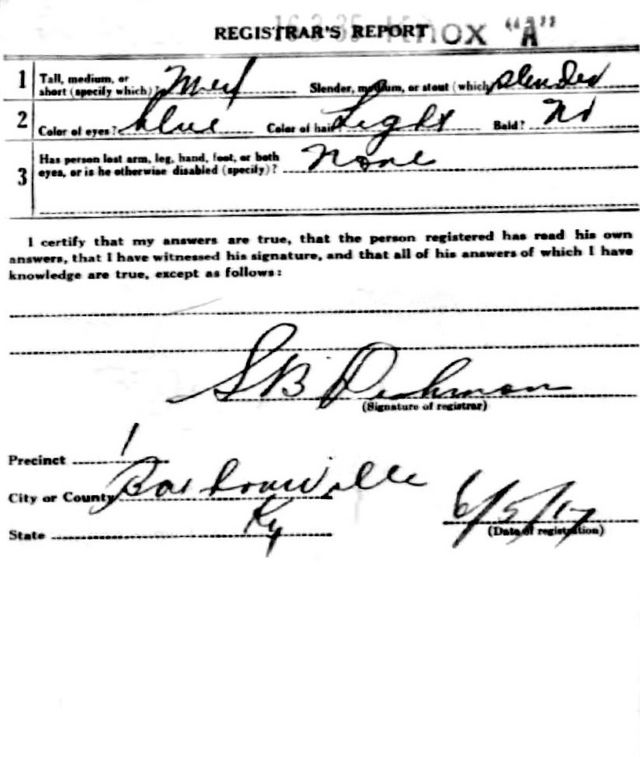 16-3-35 Knox "A"
REGISTRAR'S REPORT
1 Tall, medium, or short (specify which)? Med Slender, medium, or stout (which)? slender
2 Color of eyes? blue Color of hair? Light Bald? No
3 Has person lost arm, leg, hand, foot, or both eyes, or is he otherwise disabled (specify)? None
I certify that my answers are true, that the person registered has read his own
answers, that I have witnessed his signature, and that all of his answers of which I have
knowledge are true, except as follows:
S B Dishman
(Signature of registrar)
Precinct 1
City or County Barbourville
State Ky 6/5/17
(Date of registration)